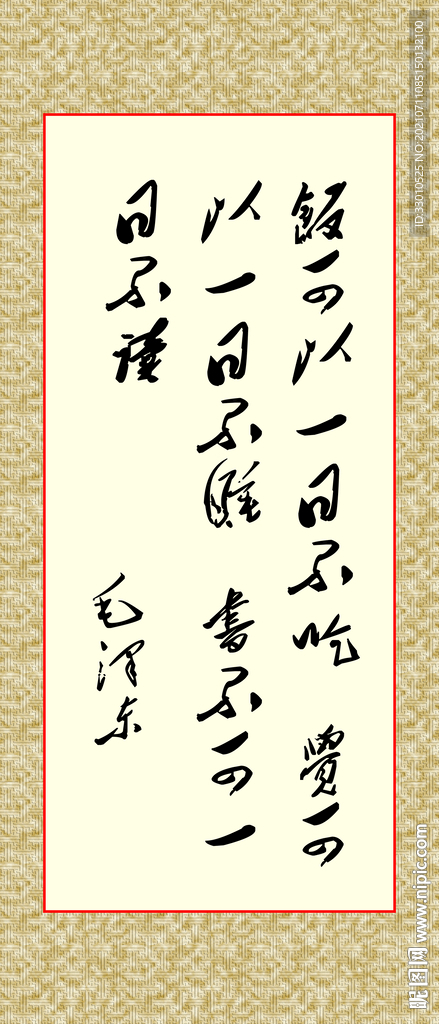 飯可以一日不吃 覺可
以一日不睡 書不可一
日不讀
毛澤东
ID:33010525 NO:20210711085150132100
昵图网 www.nipic.com